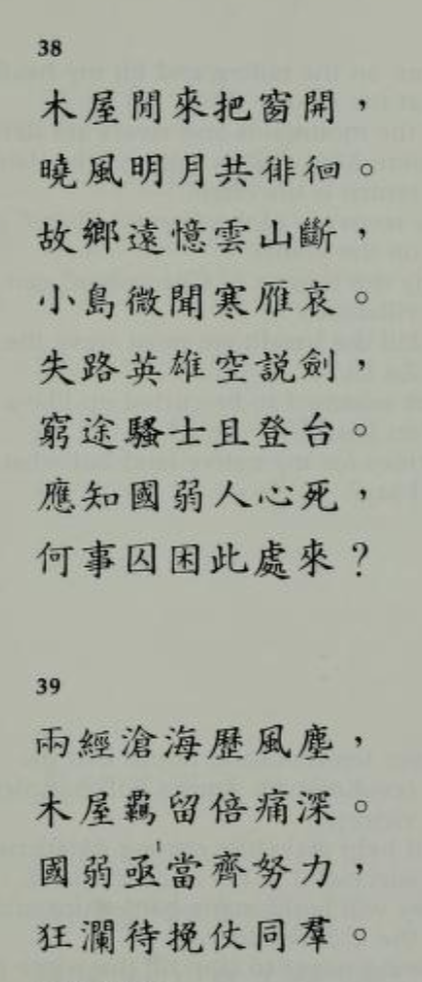 38
木屋閒來把窗開，
曉風明月共徘徊。
故鄉遠憶雲山斷，
小島微聞寒雁哀。
失路英雄空説劍，
窮途騷士且登台。
應知國弱人心死，
何事囚困此處來？
39
兩經滄海歷風塵，
木屋羈留倍痛深。
國弱亟1當齊努力，
狂瀾待挽仗同羣。